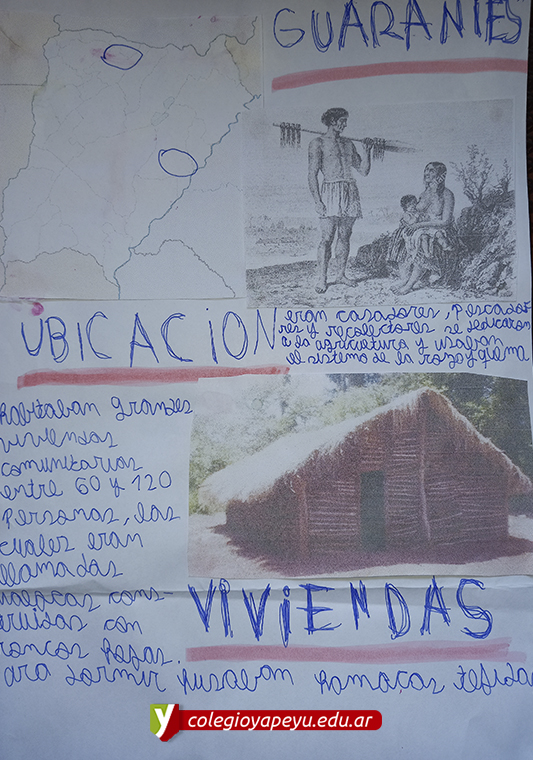 GUARANIES
UBICACION
eran casadores, pescado-
res y recolectores se dedicaron
a la agricultura y usaban
el sistema de la roza y quema
habitaban grandes
viviendas
comunitarias
entre 60 y 120
personas, las
cuales eran
llamadas
malocas cons-
truidas con
troncos hojas.
VIVIENDAS
para dormir husaban hamacas tejidas
y colegioyapeyu.edu.ar